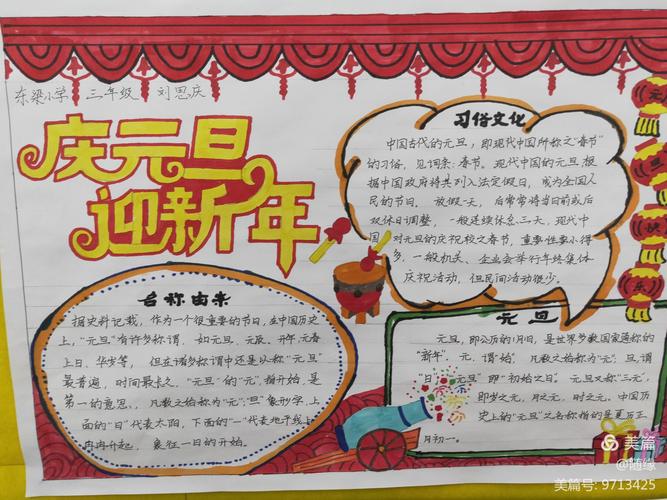 东梁小学 三年级 刘思庆
庆元旦
迎新年
习俗文化
中国古代的元旦，即现代中国所称之“春节”
的习俗，见词条：春节。现代中国的元旦，根
据中国政府将其列入法定假日，成为全国人
民的节日。放假一天，后常常将当日前或后
双休日调整，一般连续休息三天，现代中
国对元旦的庆祝较之春节，重要性要小得
多，一般机关、企业会举行年终集体
庆祝活动，但民间活动很少。
名称由来
据史料记载，作为一个很重要的节日，在中国历史
上，“元旦”有许多称谓，如元旦、元辰、开年、元春
上日、华岁等，但在诸多称谓中还是以称“元旦”
最普遍，时间最长久。“元旦”的“元”，指开始，是
第一的意思，凡数之始称为“元”，“旦”象形字，上
面的“日”代表太阳，下面的“一”代表地平线上
冉冉升起，象征一日的开始。
元旦
元旦，即公历的1月1日，是世界多数国家通称的
“新年”。元，谓“始”，凡数之始称为“元”；旦，谓
“日”；“元旦”即“初始之日”。元旦又称“三元”，
即岁之元，月之元，时之元。中国历
史上的“元旦”之名称指的是夏历正
月初一。
元
快
乐
美篇
@随缘
美篇号: 9713425